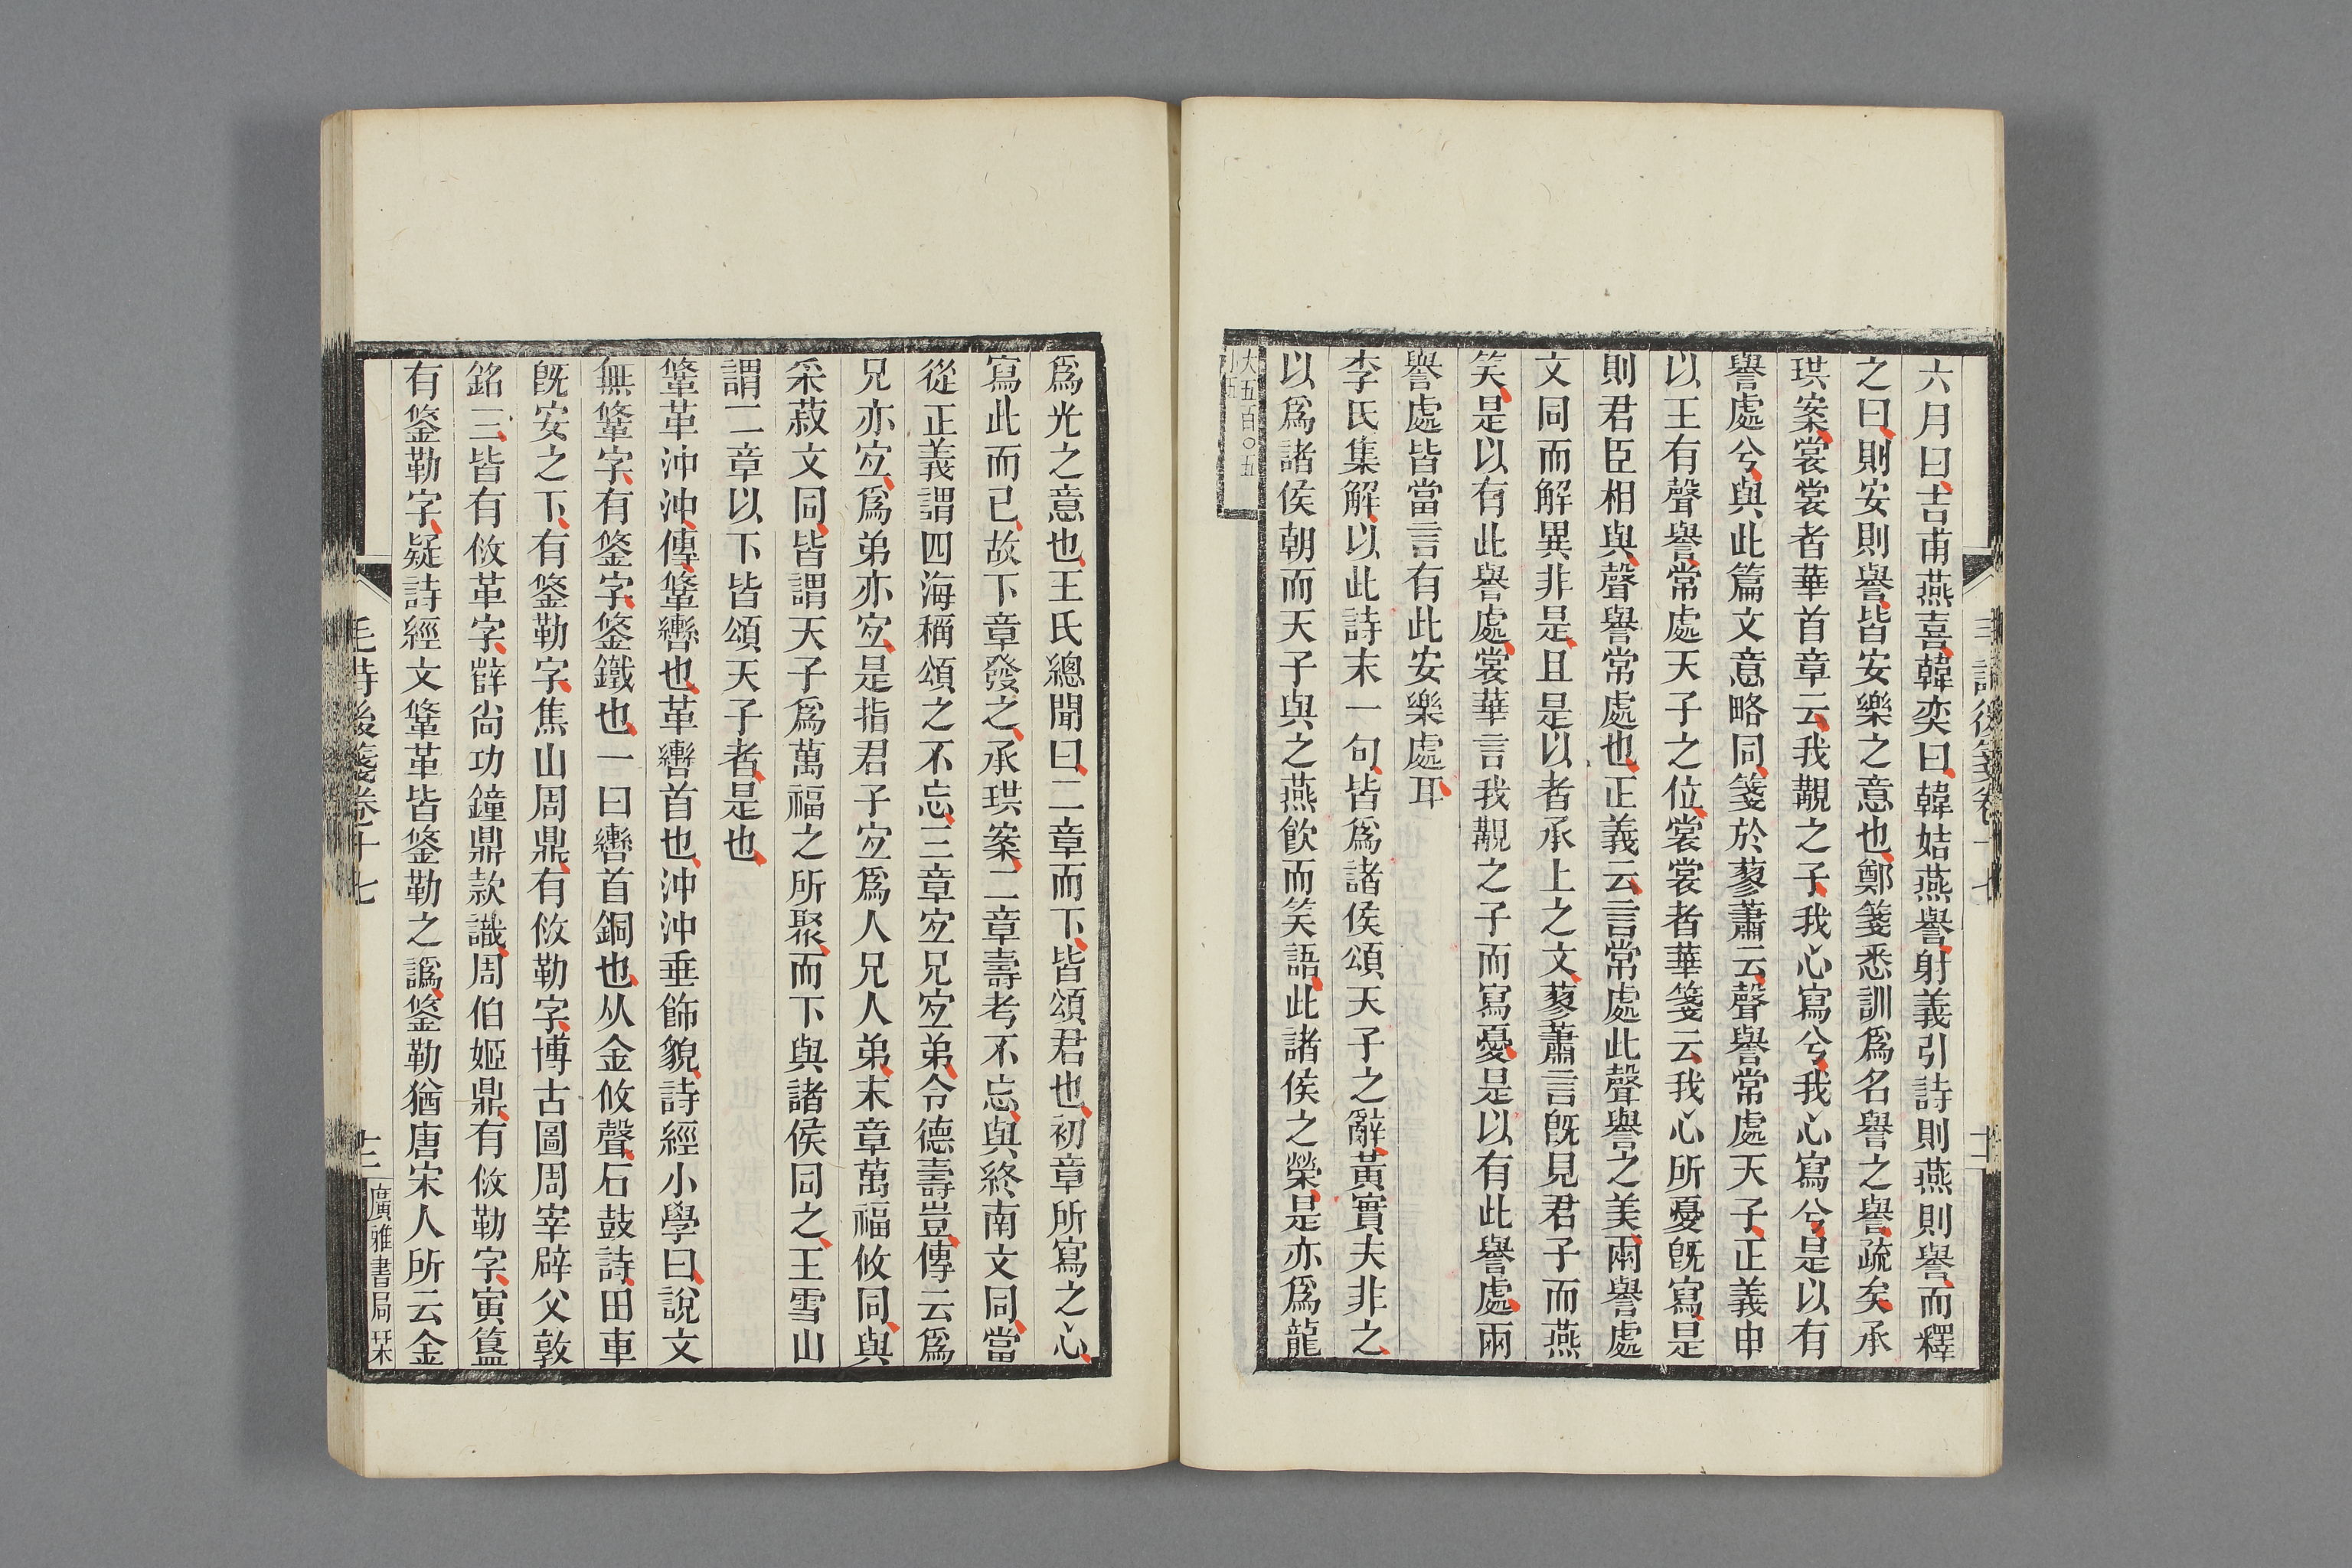 六月曰吉甫燕喜韓奕曰韓姞燕譽射義引詩則燕則譽而釋
之曰則安則譽皆安樂之意也鄭箋悉訓爲名譽之譽疏矣承
珙案裳裳者華首章云我覯之子我心寫兮我心寫兮是以有
譽處兮與此篇文意略同箋於蓼蕭云聲譽常處天子正義申
以王有聲譽常處天子之位裳裳者華箋云我心所憂旣寫是
則君臣相與聲譽常處也正義云言常處此聲譽之美兩譽處
文同而解異非是且是以者承上之文蓼蕭言旣見君子而燕
笑是以有此譽處裳華言我覯之子而寫憂是以有此譽處兩
譽處皆當言有此安樂處耳
李氏集解以此詩末一句皆爲諸侯頌天子之辭黃實夫非之
以爲諸侯朝而天子與之燕飲而笑語此諸侯之榮是亦爲龍
大五百〇五
爲光之意也王氏總聞曰二章而下皆頌君也初章所寫之心
寫此而已故下章發之承珙案二章壽考不忘與終南文同當
從正義謂四海稱頌之不忘三章宐兄宐弟令德壽豈傳云爲
兄亦宐爲弟亦宐是指君子宐爲人兄人弟末章萬福攸同與
采菽文同皆謂天子爲萬福之所聚而下與諸侯同之王雪山
謂二章以下皆頌天子者是也
鞗革沖沖傳鞗轡也革轡首也沖沖垂飾貌詩經小學曰說文
無鞗字有鋚字鋚鐵也一曰轡首銅也从金攸聲石鼓詩田車
旣安之下有鋚勒字焦山周鼎有攸勒字博古圖周宰辟父敦
銘三皆有攸革字薛尚功鐘鼎款識周伯姬鼎有攸勒字寅簋
有鋚勒字疑詩經文鞗革皆鋚勒之譌鋚勒猶唐宋人所云金
毛詩後箋卷十七
廣雅書局栞